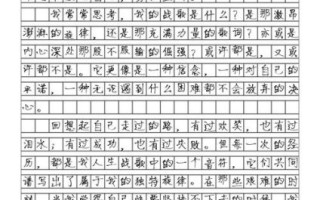 我常常思考，我的战歌是什么？是那激昂
澎湃的旋律，还是那充满力量的歌词？亦或是
内心深处那股不服输的倔强？或许都是，又或
许都不是。它更像是一种信念，一种对自己的
承诺，一种无论遇到什么困难都不会放弃的决
心。
回想起自己走过的路，有过欢笑，也有过
泪水；有过成功，也有过失败。但每一次的经
历，都是我人生战歌中的一个音符，它们共同
谱写出了属于我的独特旋律。在那些艰难的时